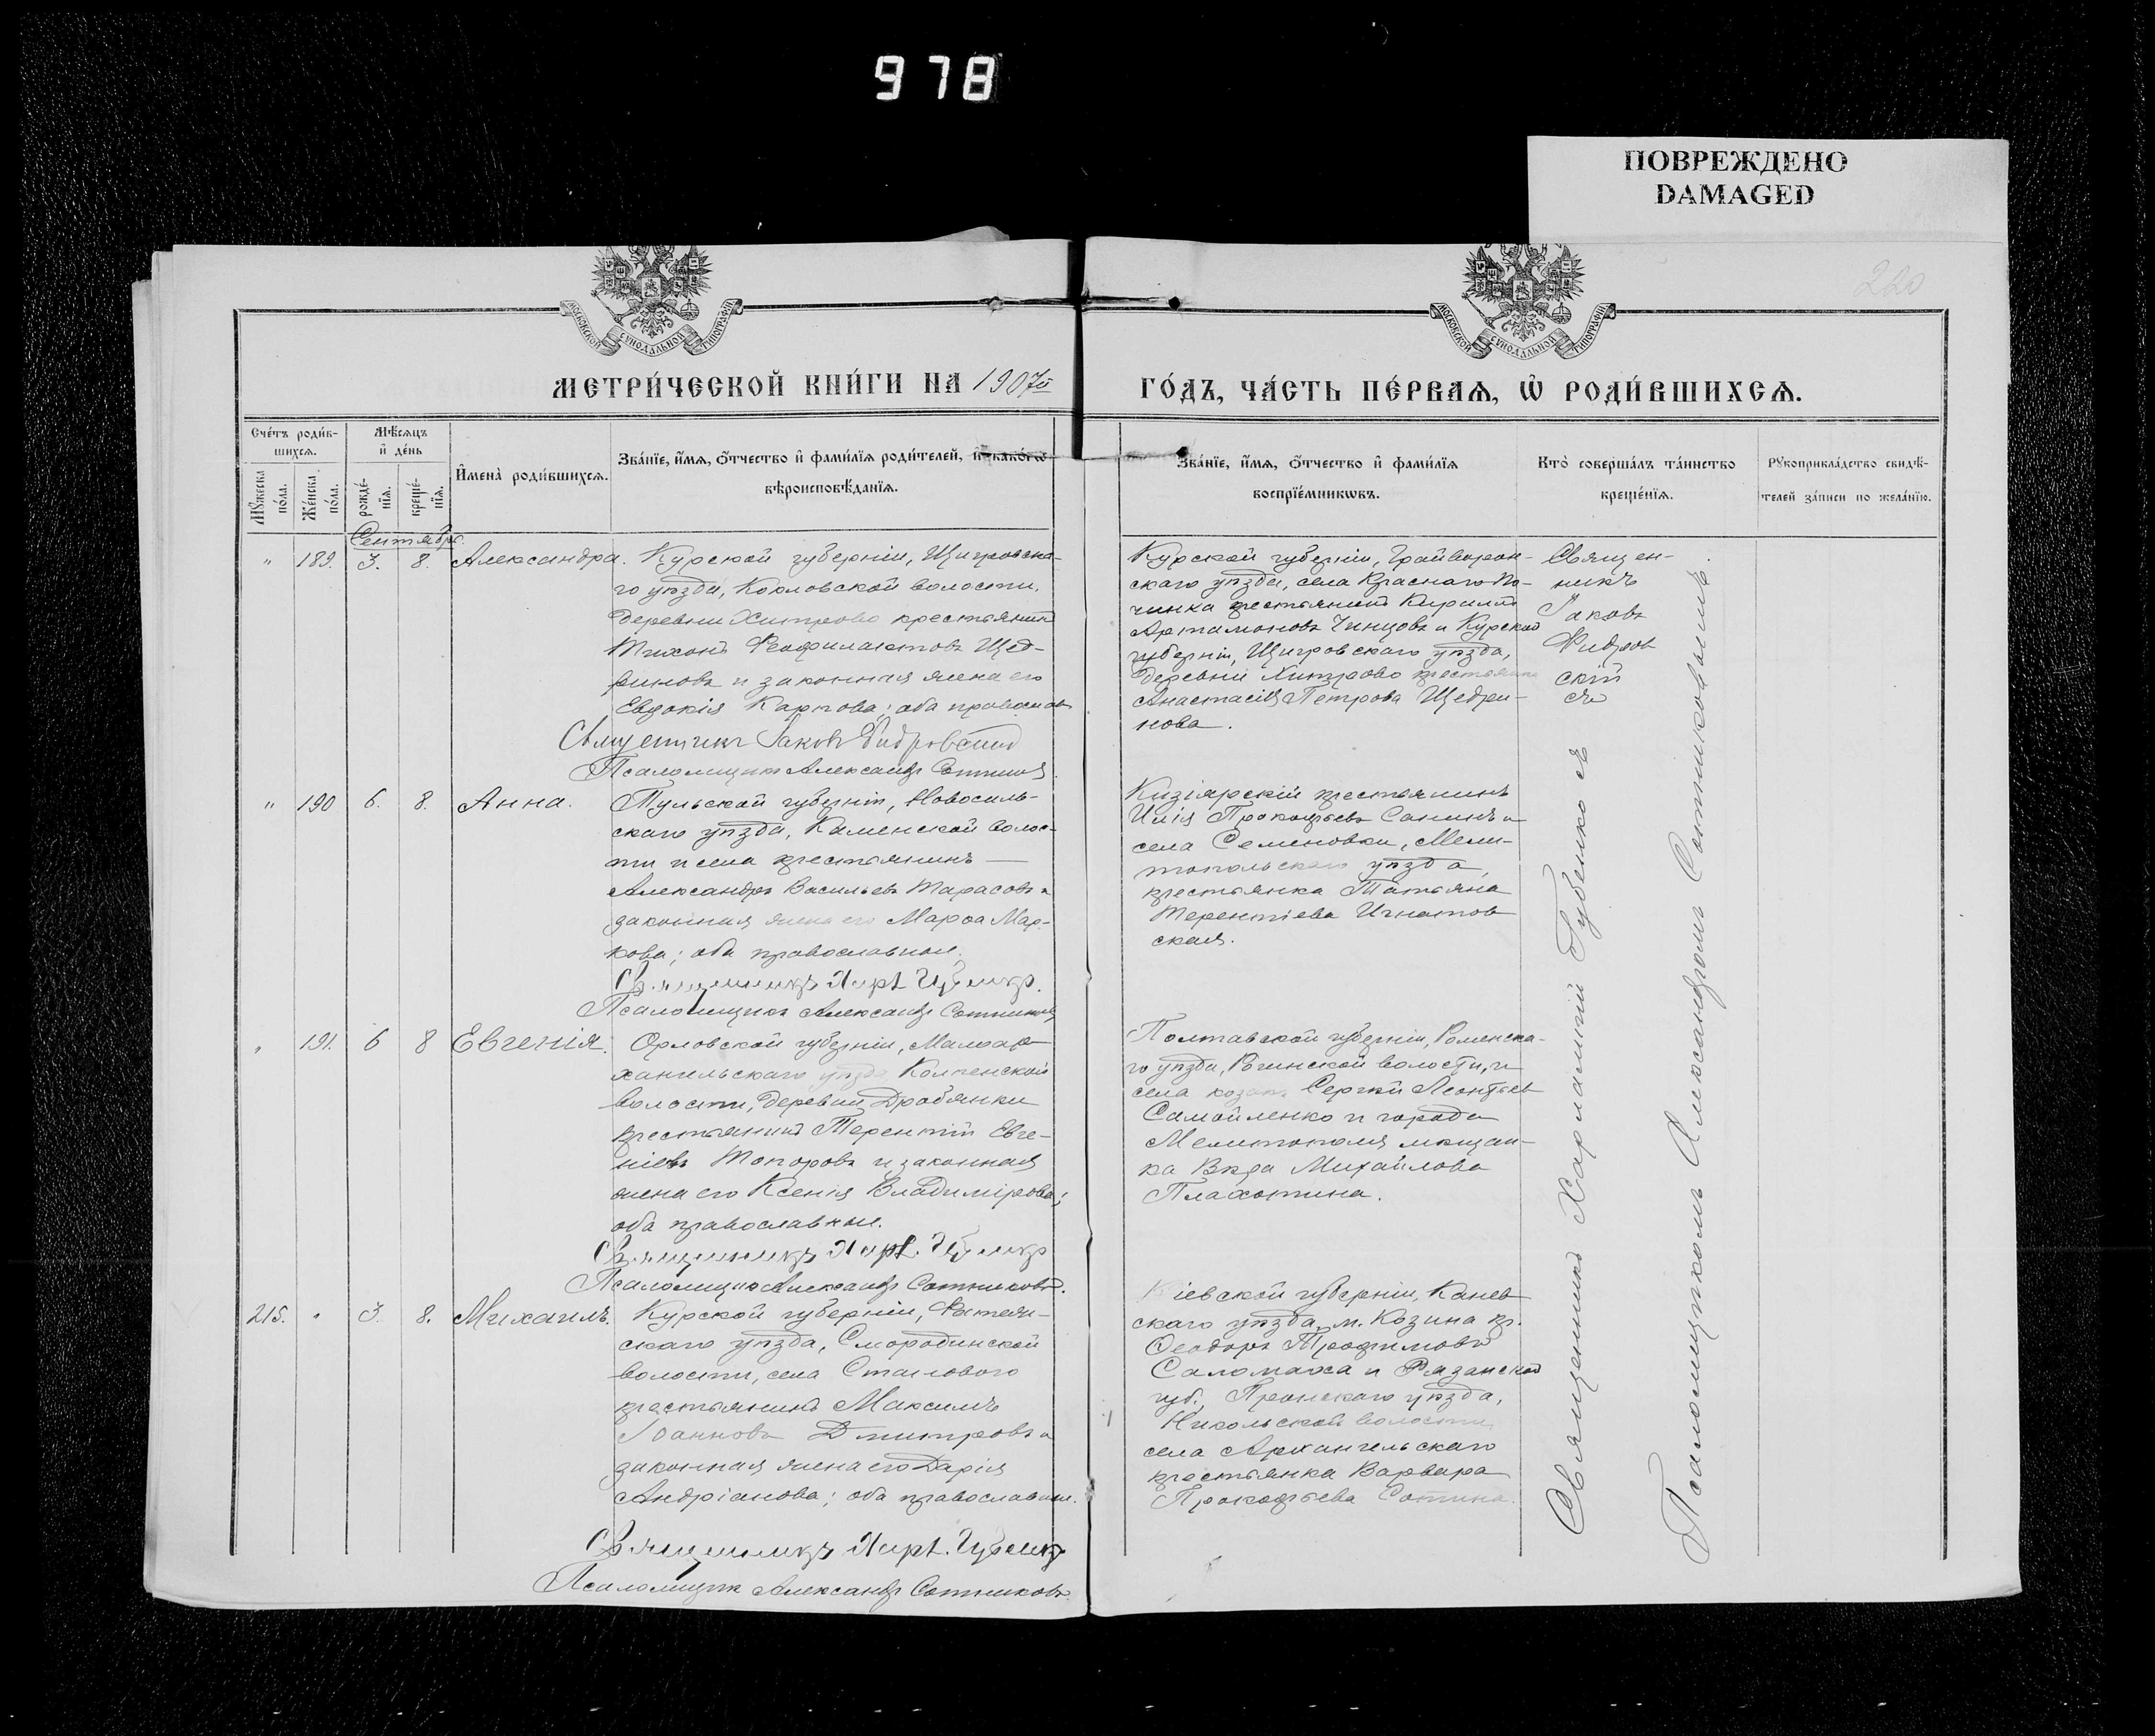 978
ПОВРЕЖДЕНО
DAMAGED
220
МОСКОВСКОЙ СѴНОДАЛЬНОЙ ТИПОГРАФІИ
МОСКОВСКОЙ СѴНОДАЛЬНОЙ ТИПОГРАФІИ
МЕТРИ́ЧЕСКОЙ КНИ́ГИ НА 1907й
ГО́ДЪ, ЧА́СТЬ ПЕ́РВАѦ, Ѽ РОДИ́ВШИХСѦ.
Сче́тъ роди́в-
шихсѧ.
Мꙋ́жеска по́ла.
Же́нска. по́ла.
Мѣ́сѧцъ
и҆ де́нь
рожде́-нїѧ.
креще́-нїѧ.
И҆мена̀ роди́вшихсѧ.
Зва́нїе, и҆́мѧ, ѻ҆́тчество и҆ фами́лїѧ роди́телей, и҆ како́гѡ
вѣроисповѣ́данїѧ.
Зва́нїе, и҆́мѧ, ѻ҆́тчество и҆ фами́лїѧ
воспрїе́мникѡвъ.
Кто̀ соверша́лъ та́инство
креще́нїѧ.
Рꙋкоприкла́дство свидѣ́-
телей за́писи по жела́нїю.
Сентябрь.
" 189. 3. 8. Александра.
Курской губерніи, Щигровска-
го уѣзда, Кокловской волости,
деревни Хитрово крестьянинъ
Тихонъ Феофилактовъ Щед-
риновъ и законная жена его
Евдокія Карпова; оба православ
Священникъ Іаковъ Фидровскій
Псаломщикъ Александръ Сотников
Курской губерніи, Грайворон-
скаго уѣзда, села Краснаго По-
чинка крестьянинъ Кириллъ
Артамоновъ Чинцовъ и Курской
губерніи, Щигровскаго уѣзда,
деревни Хитрово крестьянка
Анастасія Петрова Щедри-
нова.
Священ-
никъ
Іаковъ
Фидров
скій
съ
" 190 6. 8. Анна.
Тульской губерніи, Новосиль-
скаго уѣзда, Каменской волос-
ти и села крестьянинъ —
Александръ Васильевъ Тарасовъ и
законная жена его Марѳа Мар-
кова; оба православные.
Священникъ Харл. Губенко.
Псаломщикъ Александръ Сотниковъ
Кизіярскій крестьянинъ
Илія Прокофьевъ Санинъ и
села Семеновки, Мели-
топольскаго уѣзда
крестьянка Татьяна
Терентіева Игнатов
ская.
" 191. 6 8 Евгенія.
Орловской губерніи, Малоар-
хангельскаго уѣзда Колпенской
волости, деревни Дробянки
крестьянинъ Терентій Евге-
ніевъ Топоровъ и законная
жена его Ксенія Владимірова;
оба православные.
Священникъ Харл. Губенко
Псаломщикъ Александръ Сотниковъ.
Полтавской губерніи, Роменска-
го уѣзда, Рогинской волости, и
села козакъ Сергѣй Леонтьев
Самойленко и города
Мелитополя мѣщан-
ка Вѣра Михайлова
Плахотина.
215. " 3. 8. Михаилъ.
Курской губерніи, Фатеж-
скаго уѣзда, Смородинской
волости, села
крестьянинъ Максимъ
Іоанновъ Дмитровъ и
законная жена его Дарія
Андріанова; оба православные.
Священникъ Харл. Губенко
Псаломщик Александръ Сотниковъ
Кіевской губерніи, Канев
скаго уѣзда, м. Козина кр.
Ѳеодоръ Трофимовъ
Саломаха и Рязанской
губ., Пронскаго уѣзда,
Никольской волости,
села Архангельскаго
крестьянка Варвара
Прокофьева Сотина.
Священникъ Харлампій Губенко съ
Псаломщикомъ Александромъ Сотниковымъ.